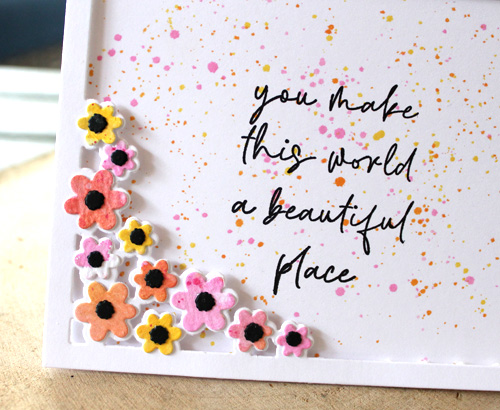 you make
this world
a beautiful
place